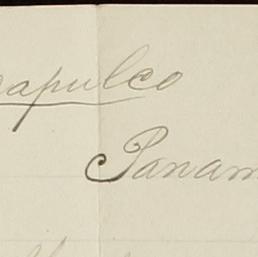 capulco
Panam